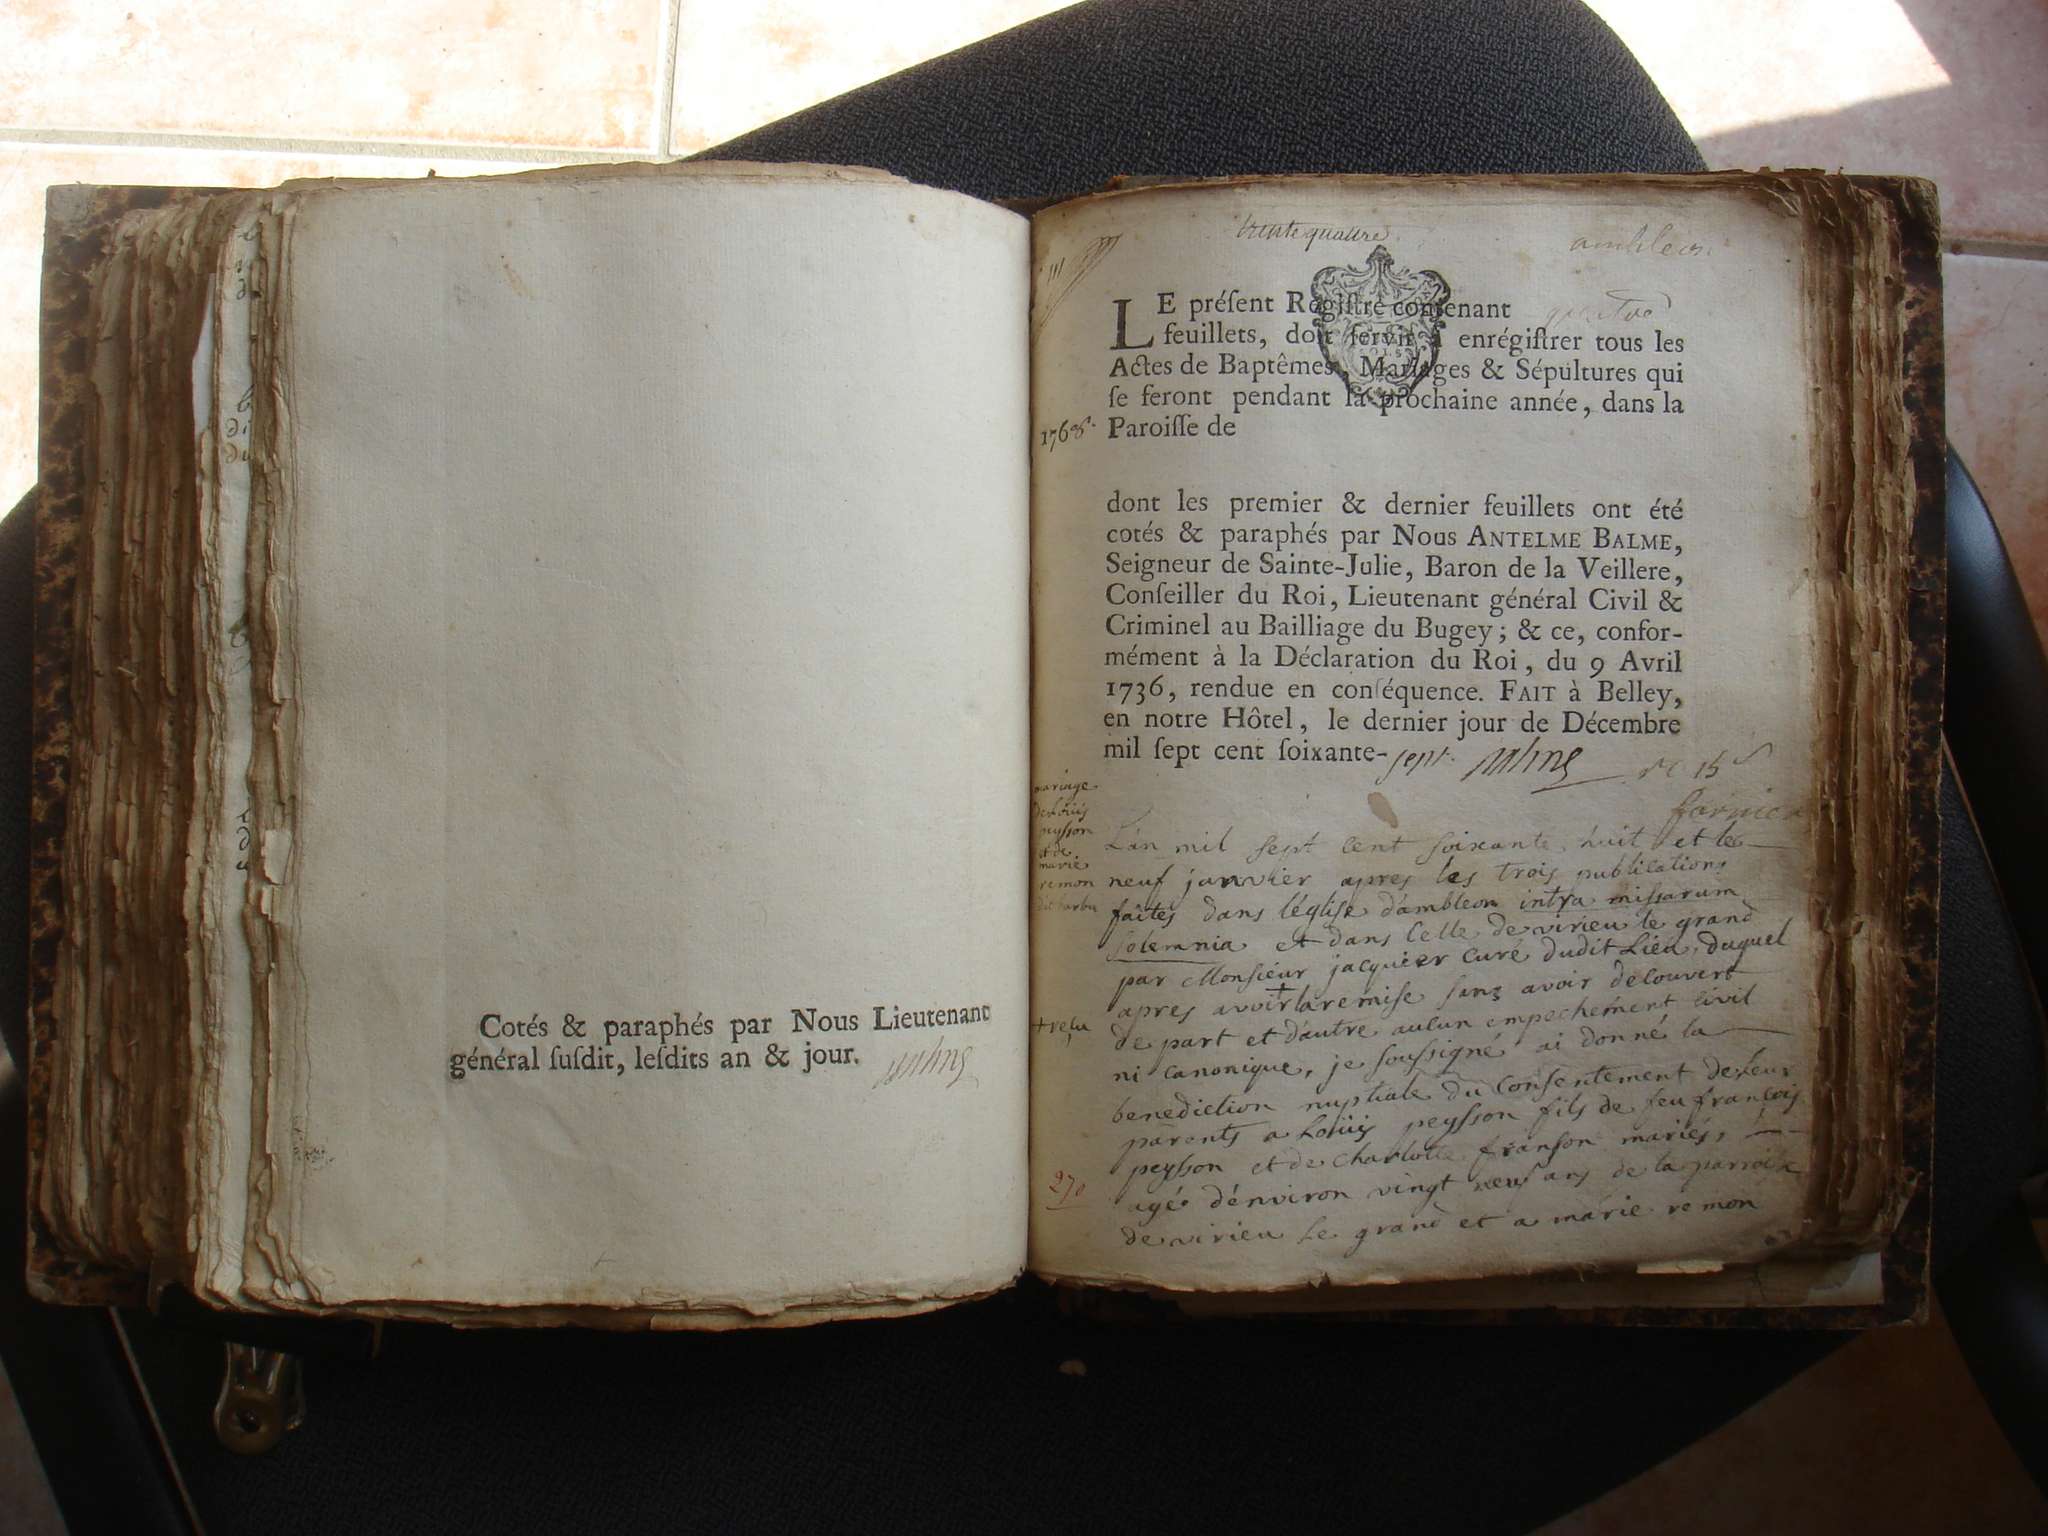 Cotés & paraphés par Nous Lieutenant
général ſuſdit, leſdits an & jour.
trente quatre
ambleon
LE préſent Regiſtre contenant quatre
feuillets, doit ſervir à enrégiſtrer tous les
Actes de Baptêmes, Mariages & Sépultures qui
ſe feront pendant la prochaine année, dans la
1768.
Paroiſſe de
dont les premier & dernier feuillets ont été
cotés & paraphés par Nous ANTELME BALME,
Seigneur de Sainte-Julie, Baron de la Veillere,
Conſeiller du Roi, Lieutenant général Civil &
Criminel au Bailliage du Bugey; & ce, confor-
mément à la Déclaration du Roi, du 9 Avril
1736, rendue en conſéquence. FAIT à Belley,
en notre Hôtel, le dernier jour de Décembre
mil ſept cent ſoixante-sept.
mariage
de Loüis
peysson
et de
marie
remon
dit barbu
L'an mil sept cent soixante huit et le
neuf janvier apres les trois publications
faites dans l'église d'ambleon intra missarum
solemnia et dans celle de virieu le grand
par Monsieur jacquier curé dudit Lieu, duquel
apres avoir + la remise sans avoir decouvert
+ reçu
de part et d'autre aucun empechement civil
ni canonique, je soussigné ai donné la
benediction nuptiale du consentement de leur
parents a Loüis peysson fils de feu françois
peysson et de Charlotte franson mariés,
270
agé d'environ vingt neuf ans de la parroisse
de virieu le grand et a marie remon